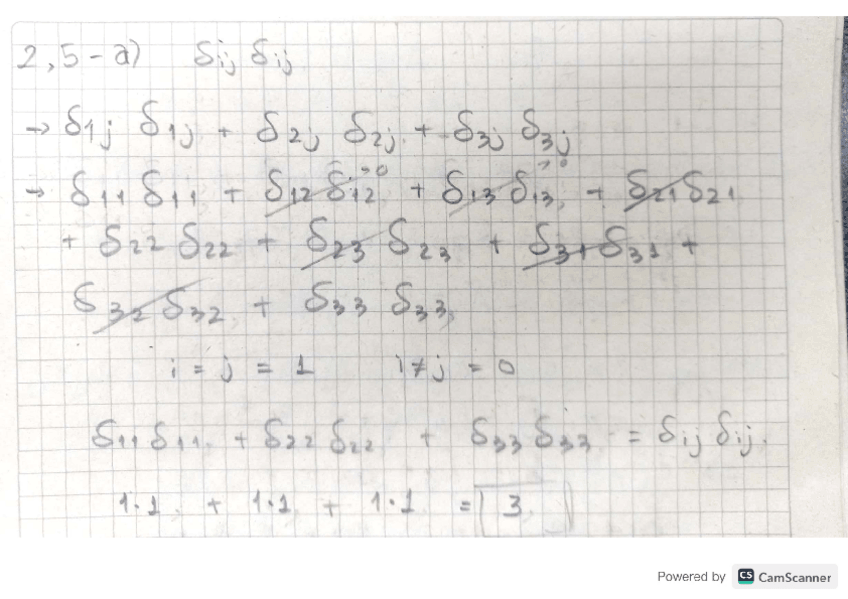 2,5-a) δij δij
→ δ1j δ1j + δ2j δ2j + δ3j δ3j
→ δ11 δ11 + δ12 δ12 →0 + δ13 δ13 →0 + δ21 δ21
+ δ22 δ22 + δ23 δ23 + δ31 δ31 +
δ32 δ32 + δ33 δ33
i = j = 1 i ≠ j = 0
δ11 δ11 + δ22 δ22 + δ33 δ33 = δij δij.
1·1 + 1·1 + 1·1 = 3
Powered by CS CamScanner